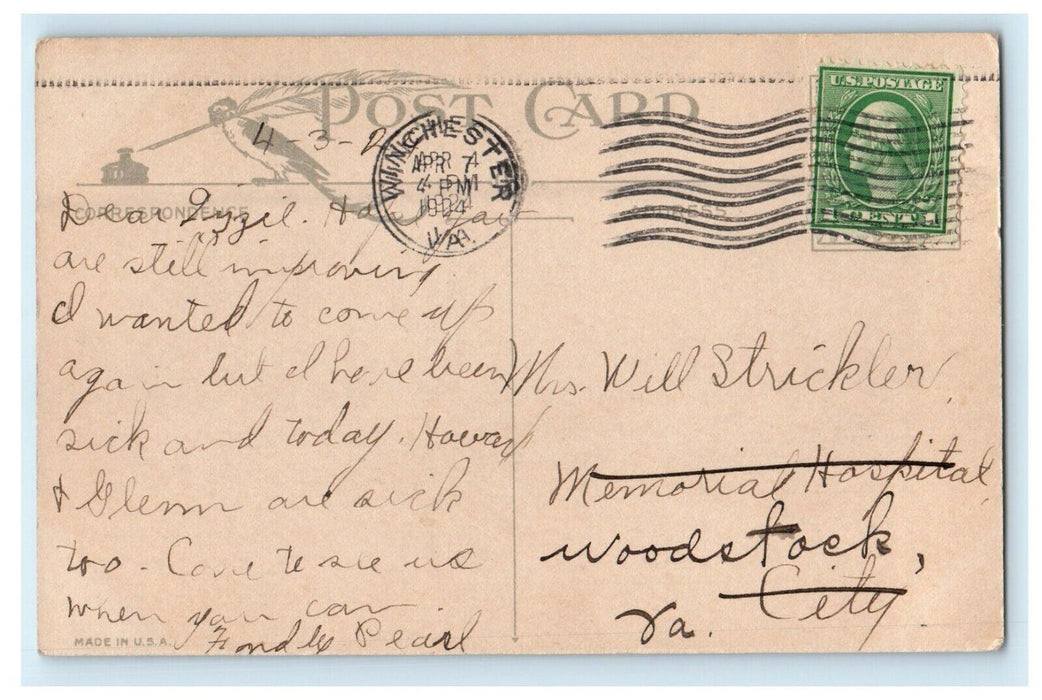 POST CARD
U.S. POSTAGE
4-3-2
WINCHESTER
APR 4
APR 7
4 PM
1924
VA.
1 CENT 1
CORRESPONDENCE
ADDRESS
Dear Hope you
are still improving.
I wanted to come up
again but I have been
sick and today. Howard
& Glenn are sick
too - Come to see us
when you can.
Fondly Pearl
Mrs. Will Strickler,
Memorial Hospital,
Woodstock,
City.
Va.
MADE IN U.S.A.